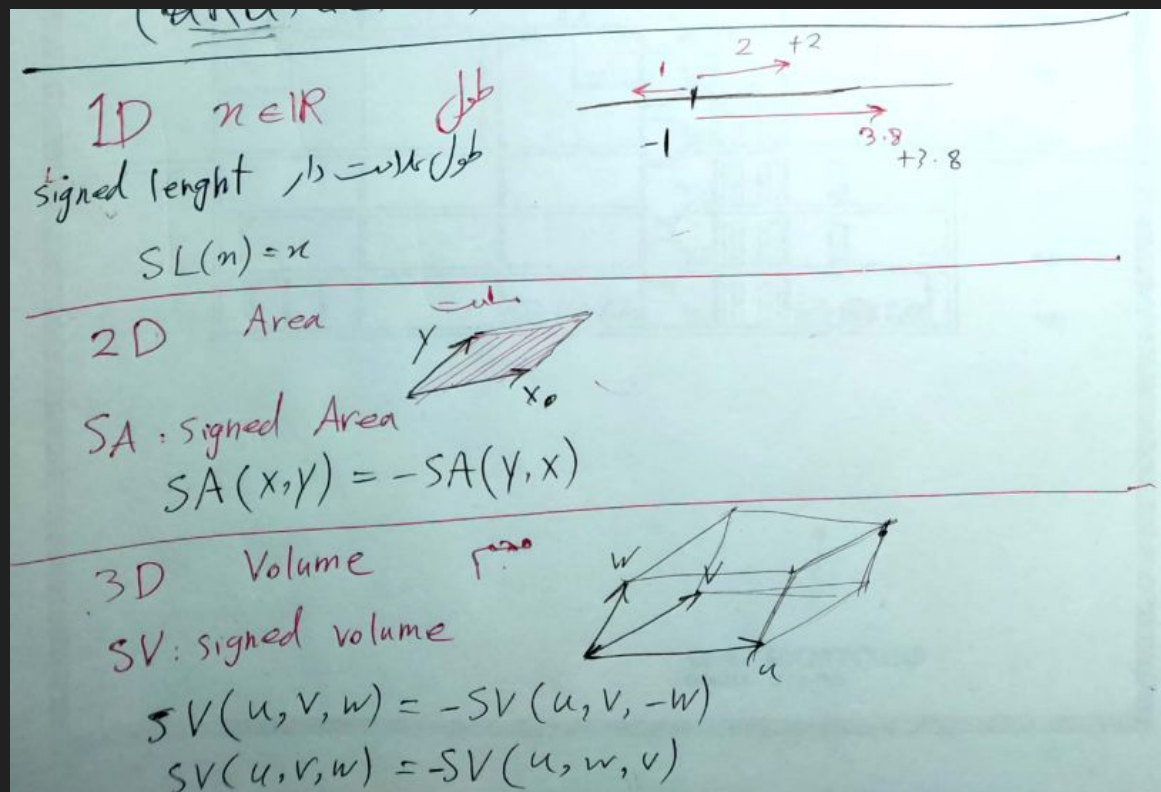 1D x ∈ IR طول
1 2 +2
-1 3.8
+3.8
signed lenght طول علامت دار
SL(x) = x
2D Area مساحت
Y
X
SA : signed Area
SA(X,Y) = -SA(Y,X)
3D Volume حجم
W V
u
SV : signed volume
SV(u,v,w) = -SV(u,v,-w)
SV(u,v,w) = -SV(u,w,v)